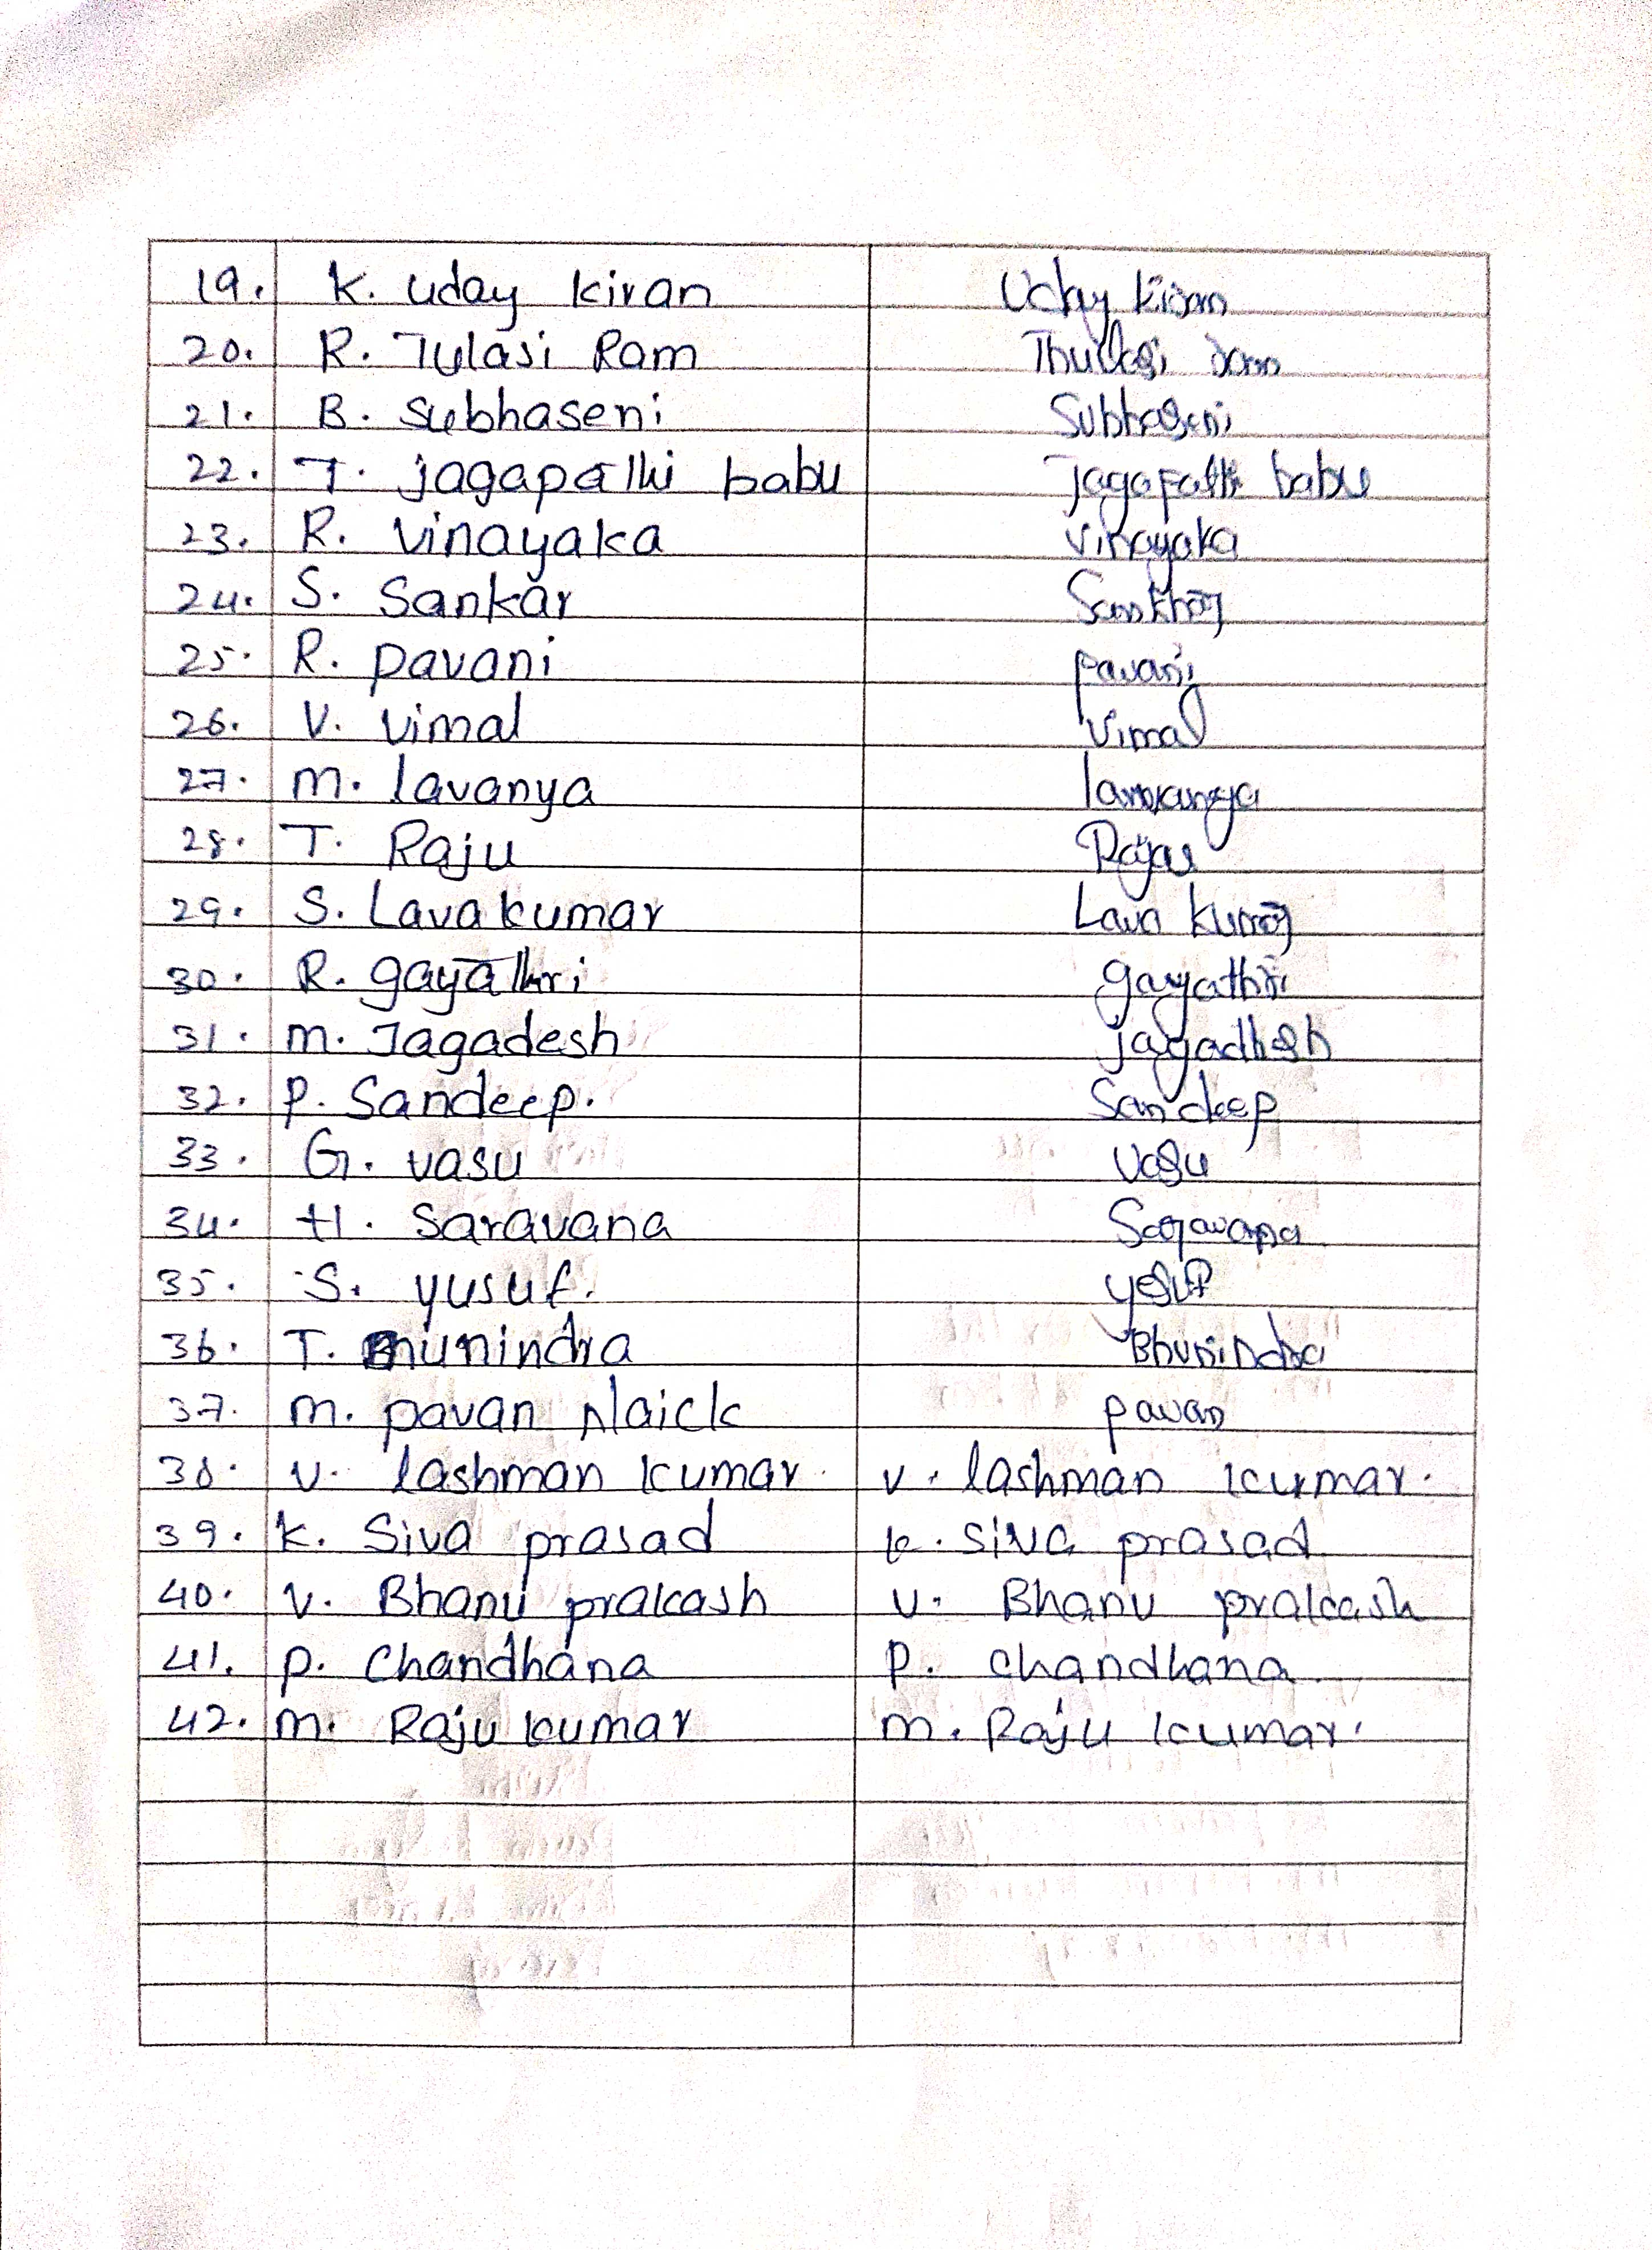 19. K. Uday Kiran Uday Kiran
20. R. Tulasi Ram Thullasi
21. B. Subhaseni Subhaseni
22. T. jagapathi babu jagapathi babu
23. R. Vinayaka Vinayaka
24. S. Sankar Sankhar
25. R. pavani pavani
26. V. Vimal Vimal
27. m. lavanya
28. T. Raju Raju
29. S. Lavakumar Lava kumar
30. R. gayathri gayathri
31. m. Jagadesh jagadhesh
32. P. Sandeep. Sandeep
33. G. vasu Vasu
34. H. Saravana Saravana
35. S. yusuf. yesuf
36. T. munindra Bhunindra
37. m. pavan Naick pavan
38. v. lashman kumar. v. lashman kumar.
39. k. Siva prasad k. Siva prasad
40. v. Bhanu prakash v. Bhanu prakash
41. p. Chandhana p. chandhana
42. m. Raju kumar m. Raju kumar.